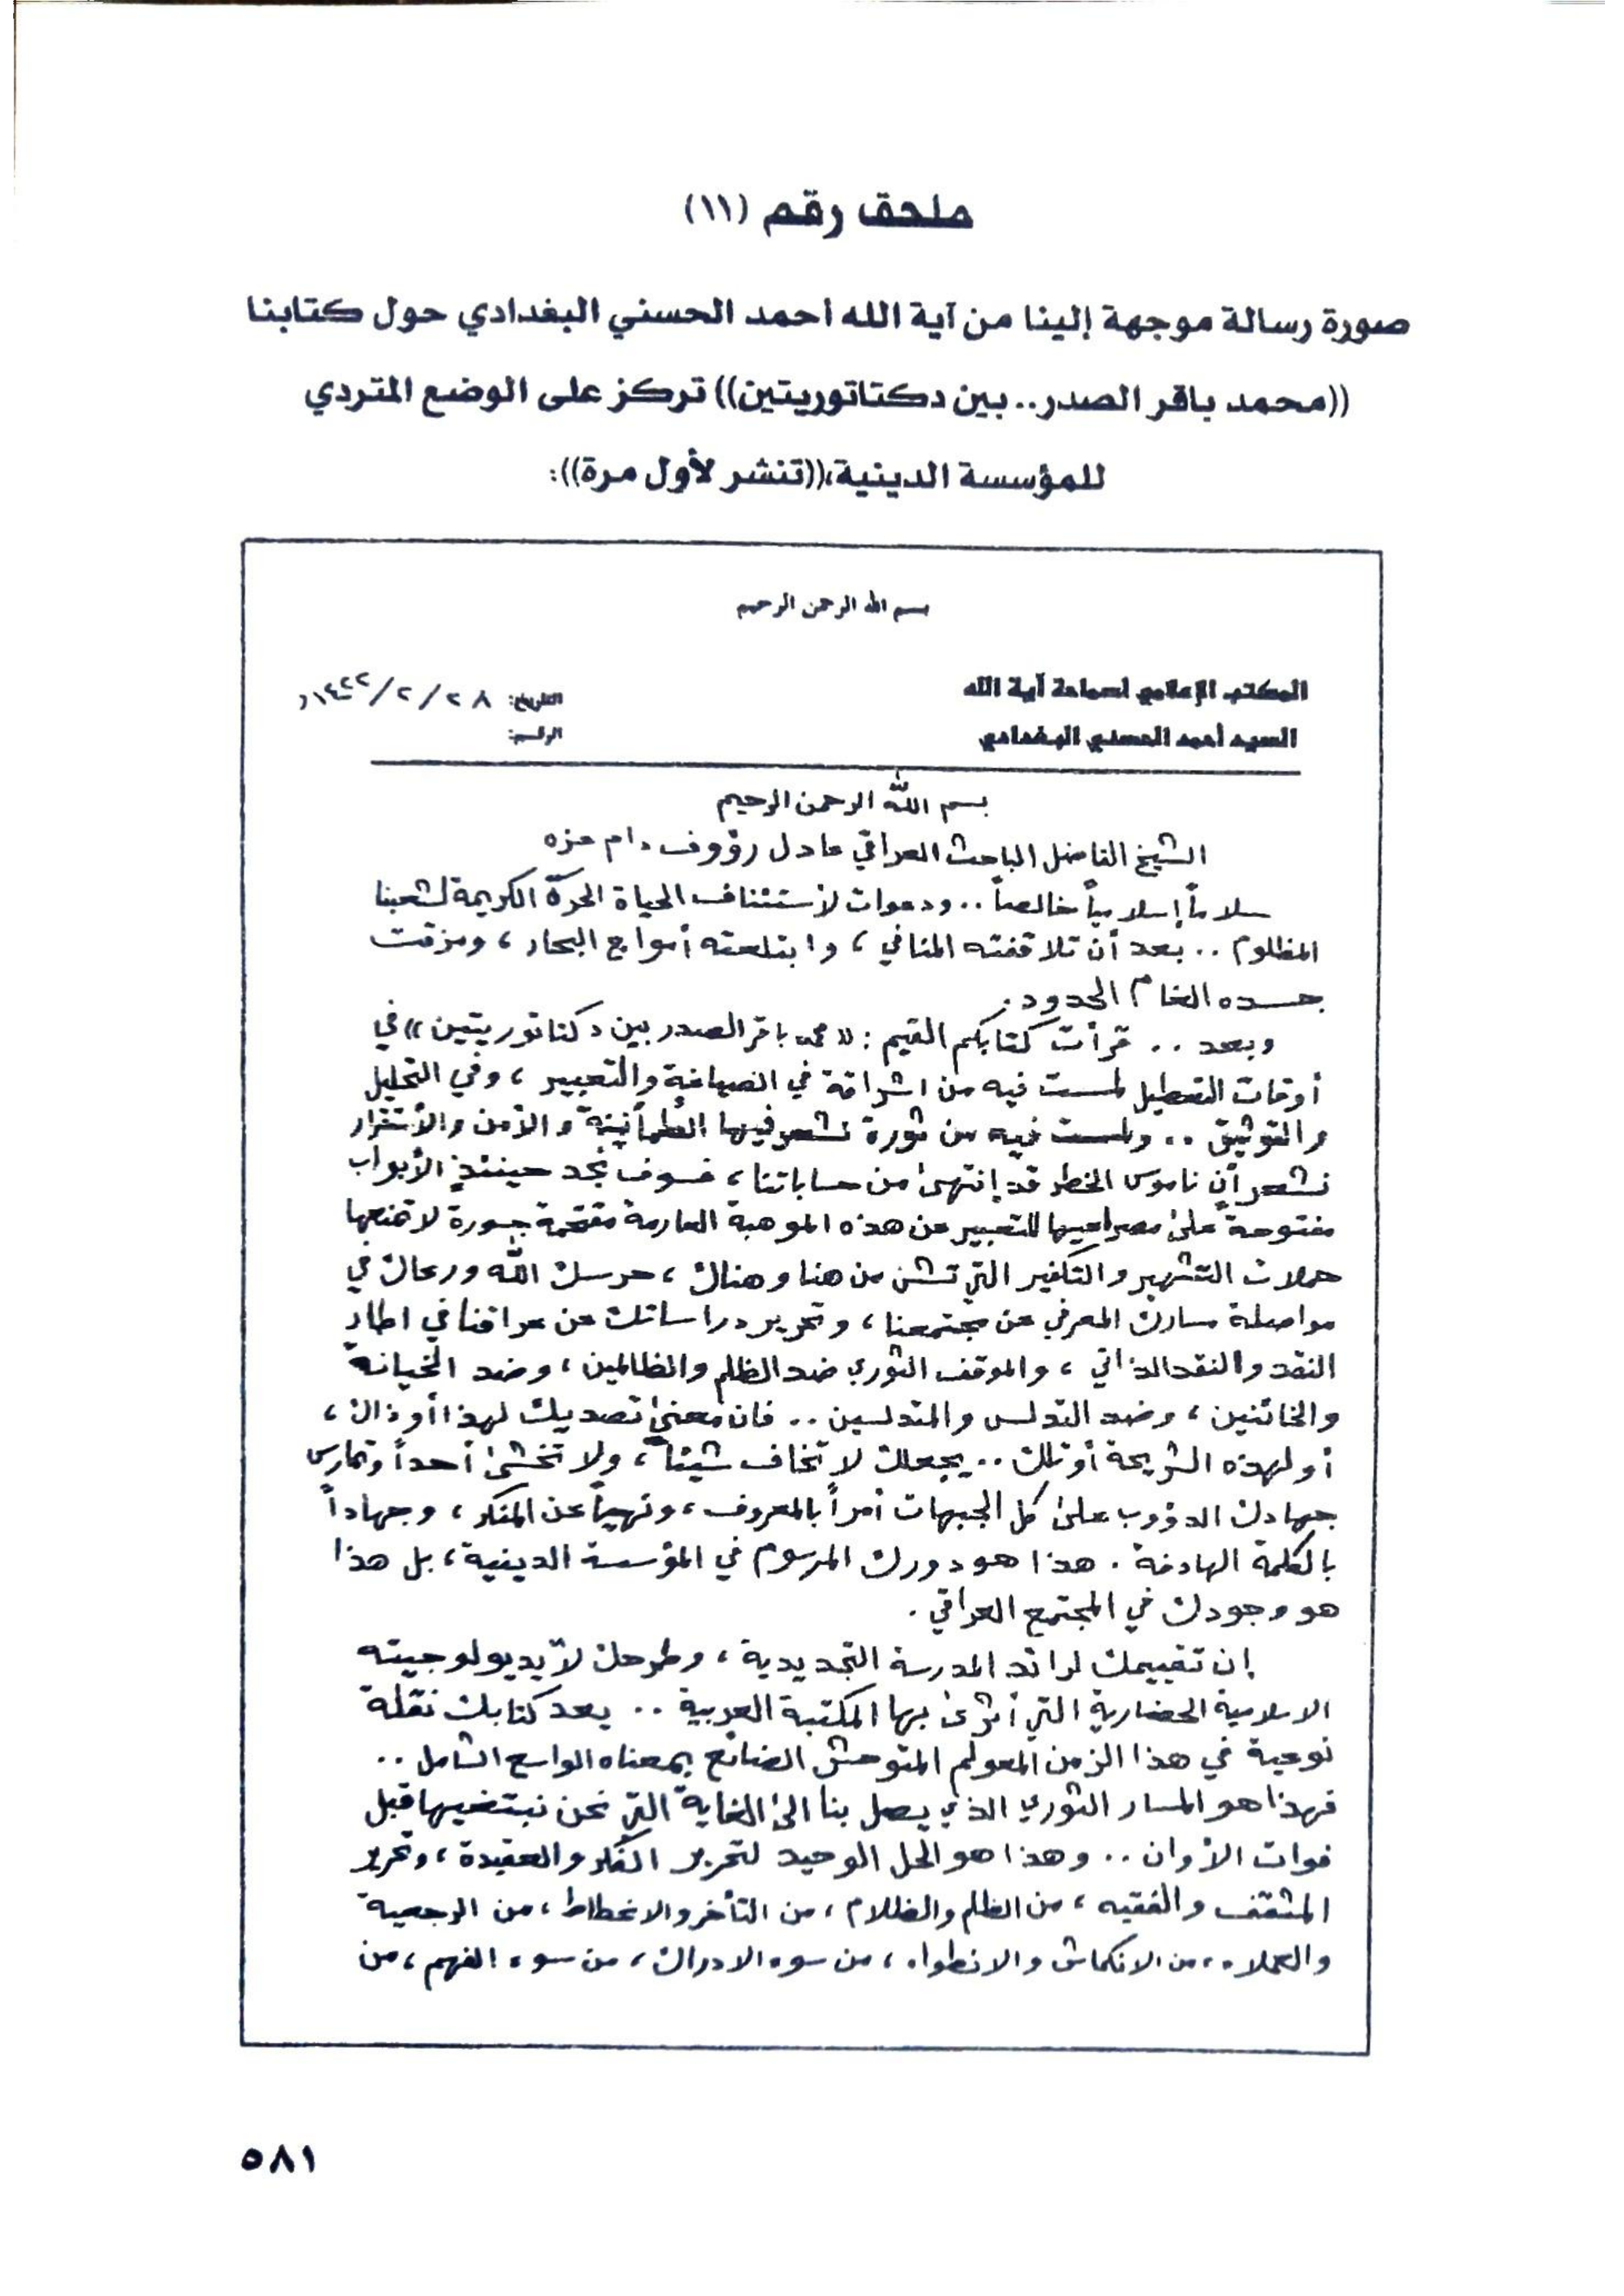 ملحق رقم (١١)
صورة رسالة موجهة إلينا من آية الله أحمد الحسني البغدادي حول كتابنا
((محمد باقر الصدر.. بين دكتاتوريتين)) تركز على الوضع المتردي
للمؤسسة الدينية،((تنشر لأول مرة)):
بسم الله الرحمن الرحيم
المكتب الإعلامي لسماحة آية الله
التاريخ: ٢٨ /٢ /١٤٢٢
السيد أحمد الحسني البغدادي
الرقم:
بسم اللّه الرحمن الرحيم
الشيخ الفاضل الباحث العراقي عادل رؤوف دام عزه
سلاماً إسلامياً خالصاً .. ودعوات لأستئناف الحياة الحرّة الكريمة لشعبنا
المظلوم .. بعد أن تلاقفته المنافي ، وابتلعته أمواج البحار ، ومزقت
جسده الغام الحدود .
وبعد .. قرأت كتابكم القيم : «محمد باقر الصدر بين دكتاتوريتين» في
أوقات التعطيل لمست فيه من اشراقة في الصياغة والتعبير ، وفي التحليل
والتوثيق .. ولمست فيه من ثورة نشعر فيها الطمأنينة والأمن والأستقرار
نشعر أن ناموس الخطر قد إنتهى من حساباتنا ، فسوف نجد حينئذٍ الأبواب
مفتوحة على مصراعيها للتعبير عن هذه الموهبة العارمة مقتحمة جسورة لا تمنعها
حملات التشهير والتكفير التي تشن من هنا وهناك ، حرسك اللّه ورعاك في
مواصلة مسارك المعرفي عن مجتمعنا ، وتحرير دراساتك عن عراقنا في اطار
النقد والنقد الذاتي ، والموقف الثوري ضد الظلم والظالمين ، وضد الخيانة
والخائنين ، وضد التدلس والمتدلسين .. فان معنى تصديك لهذا أو ذاك ،
أو لهذه الشريحة أو تلك .. يجعلك لا تخاف شيئاً ، ولا تخشى أحداً وتمارس
جهادك الدؤوب على كل الجبهات أمراً بالمعروف ، ونهياً عن المنكر ، وجهاداً
بالكلمة الهادفة . هذا هو دورك المرسوم في المؤسسة الدينية ، بل هذا
هو وجودك في المجتمع العراقي .
إن تقييمك لرائد المدرسة التجديدية ، وطرحك لأيديولوجيته
الاسلامية الحضارية التي أثرى بها المكتبة العربية .. يعد كتابك نقلة
نوعية في هذا الزمن المعولم المتوحش الضائع بمعناه الواسع الشامل ..
فهذا هو المسار الثوري الذي يصل بنا الى الغاية التي نحن نبتغيها قبل
فوات الأوان .. وهذا هو الحل الوحيد لتحرير الفكر والعقيدة ، وتحرير
المثقف والفقيه ، من الظلم والظلام ، من التأخر والانحطاط ، من الرجعية
والعملاء ، من الانكماش والانطواء ، من سوء الادراك ، من سوء الفهم ، من
٥٨١